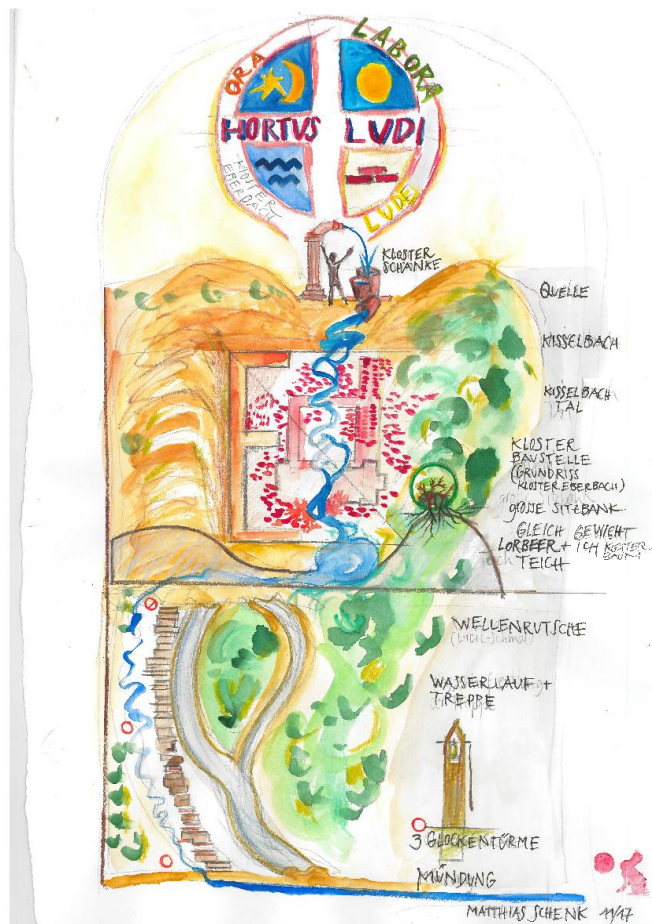 ORA
LABORA
HORTUS LUDI
KLOSTER
EBERBACH
LUDE
KLOSTER
SCHÄNKE
QUELLE
KISSELBACH
KISSELBACH
TAL
KLOSTER
BAUSTELLE
(GRUNDRISS
KLOSTER EBERBACH)
GROSSE SITZBANK
GLEICH GEWICHT
LORBEER + ICH KLETTER-
BAUM
TEICH
WELLENRUTSCHE
WASSERLAUF +
TREPPE
3 GLOCKENTÜRME
MÜNDUNG
MATTHIAS SCHENK 11/17